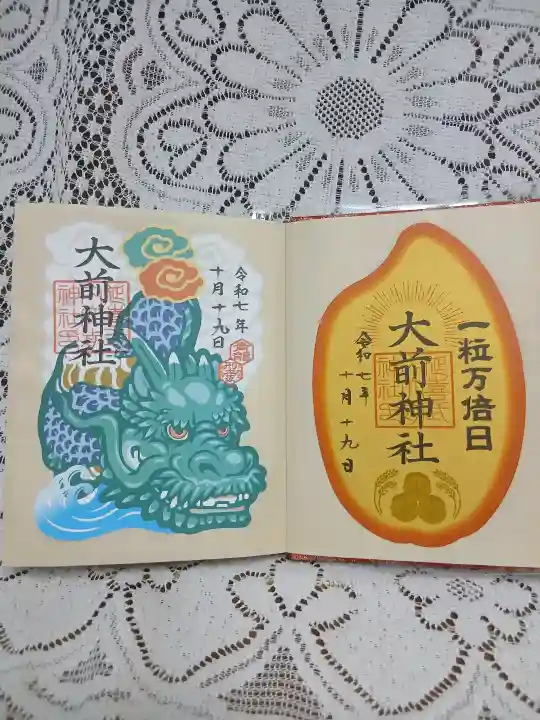 大前神社
令和七年
十月十九日
一粒万倍日
大前神社
令和七年
十月十九日